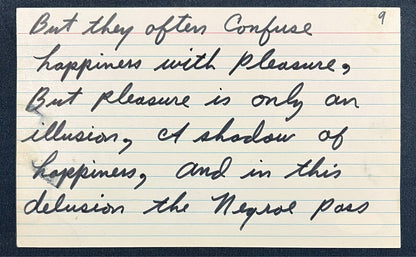 9
But they often Confuse
happiness with pleasure,
But pleasure is only an
illusion, A shadow of
happiness, and in this
delusion the Negroe pass